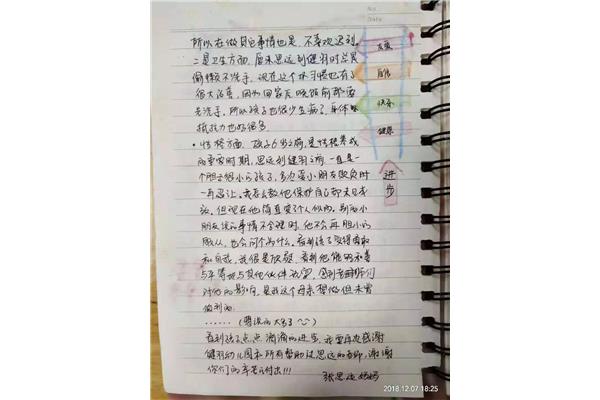 所以在做其它事情也是,不喜欢迟到。
二是卫生方面,原来思远到健羽时总是
偷懒不洗手,现在这个坏习惯也有了
很大改善,因为回家后吃饭前都需
去洗手。所以孩子也很少生病了,身体
抵抗力也好很多。
• 性格方面,孩子6岁之前,是性格养成
的重要时期,思远到健羽之前,一直是一
个胆子很小的孩子,多次受小朋友欺负时
一再忍让。我怎么教他保护自己都未见成
效。但现在他简直变了个人似的。别的小
朋友说的事情不合理时,他不会再胆小的
服从,也会问个为什么。看到孩子变得有勇
和自我,我很是欣慰,看到他能够和善
与平等地与其他伙伴玩耍,感到老师们
对他的影响,是我这个母亲想做但未曾
做到的。
......(要说的太多了~)
看到孩子点点滴滴的进步,我要再次感谢
健羽幼儿园和所有帮助过思远的老师,谢谢
你们的辛苦付出!!!
张思远妈妈
No.
Date
友爱
自信
快乐
健康
进步
2018.12.07 18:25